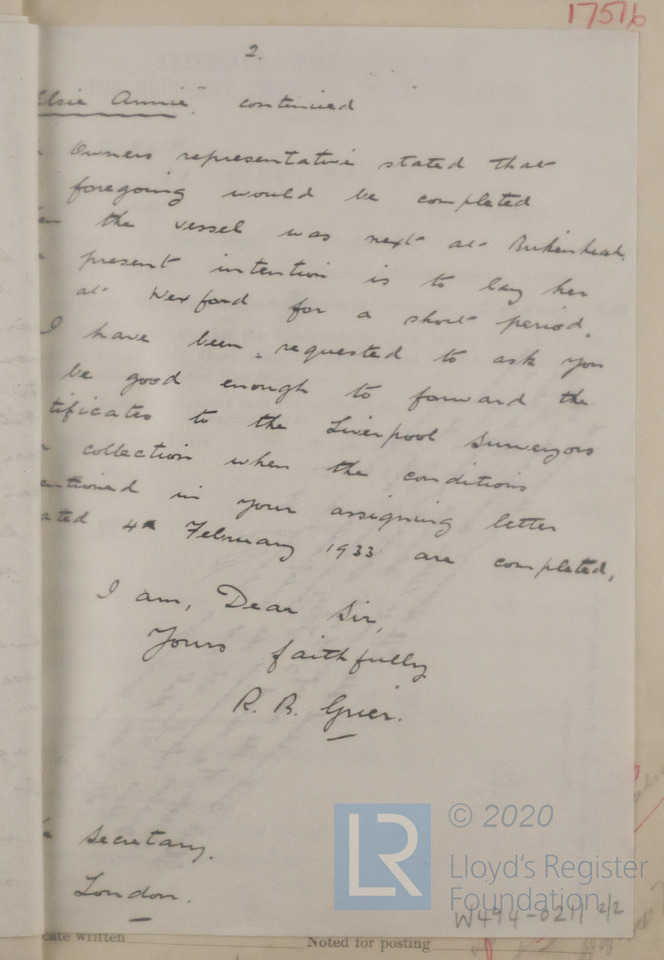 17516
2.
Elsie Annie" continued
Owners representative stated that
foregoing would be completed
the vessel was next at Birkenhead.
present intention is to lay her
at Wexford for a short period.
I have been requested to ask you
be good enough to forward the
tificates to the Liverpool Surveyors
collection when the conditions
entioned in your assigning letter
ated 4th February 1933 are completed.
I am, Dear Sir,
Yours faithfully
R. B. Grier.
Secretary.
London.
© 2020
LR
Lloyd's Register
Foundation
W494-0211 2/2
cate written
Noted for posting